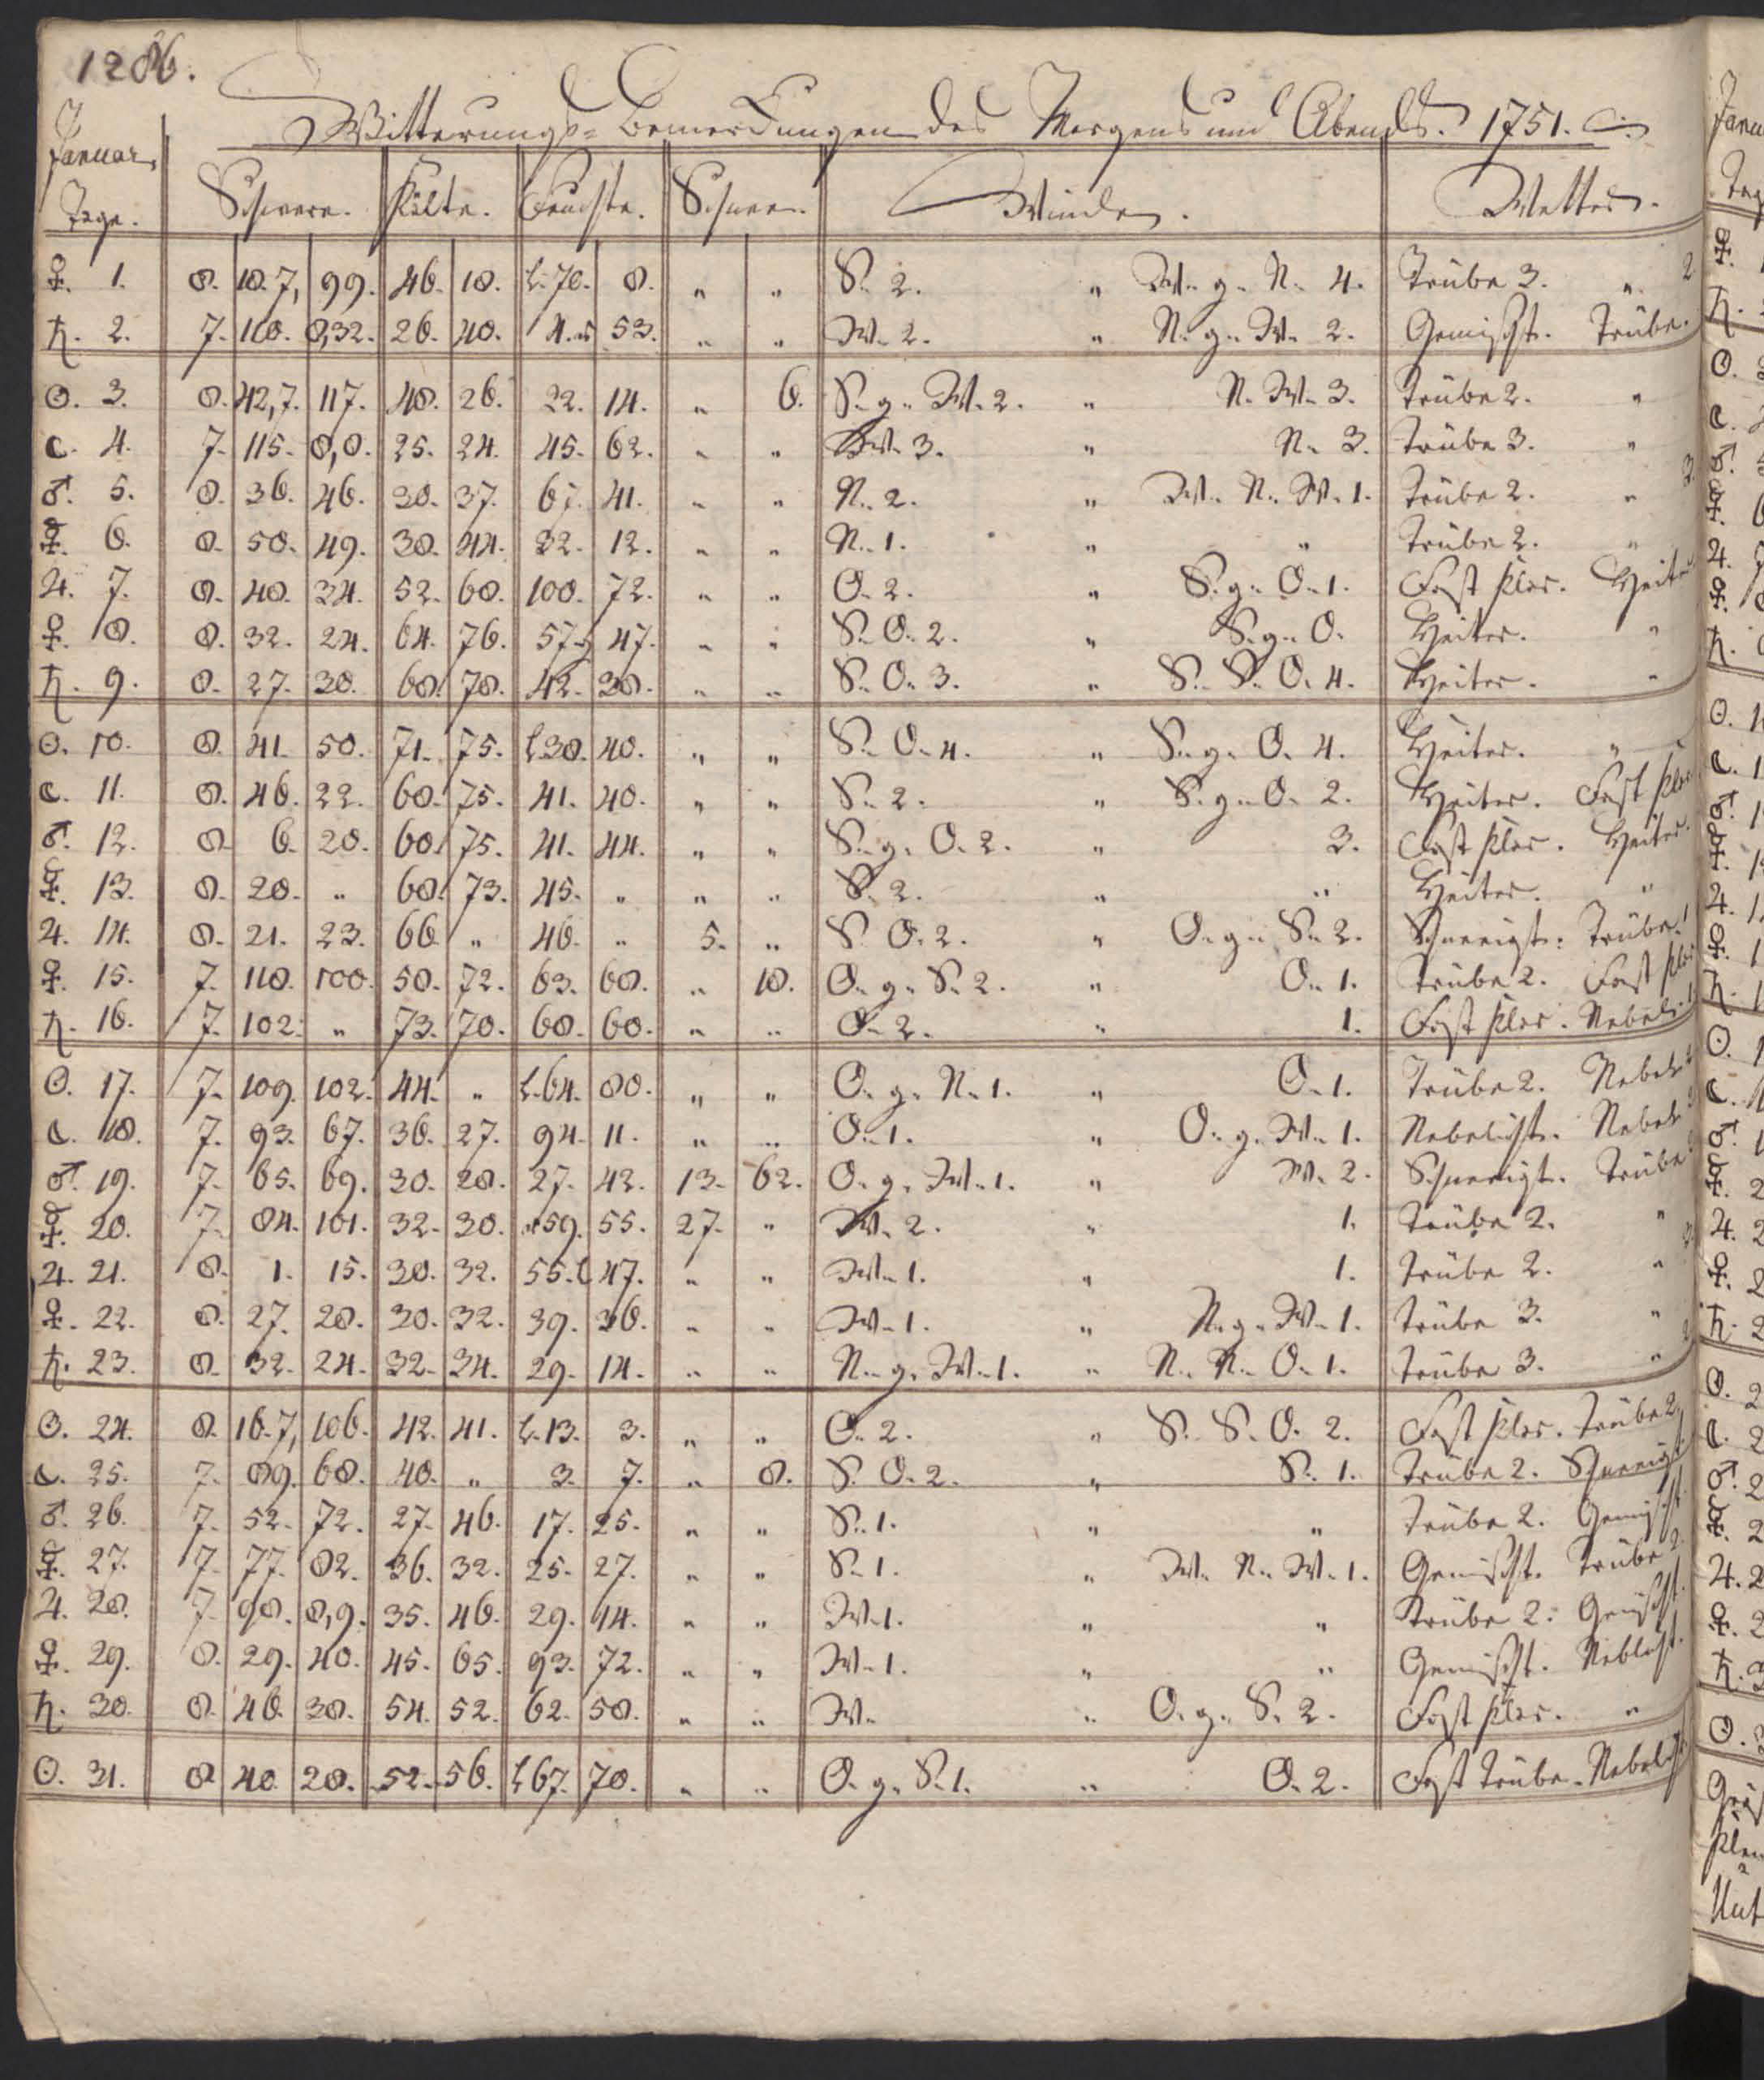 1286.
Witterungs= Bemerckungen des Morgens und Abends. 1751.
Januar,
Tage. Schwere. Kälte. Feuchte. Schnee. Winde. Wetter.
♀. 1. 8. 18. 7, 99. 46. 18. L. 8. " " S. 2. " W. g. N. 4. Trübe 3. " 2
♄. 2. 7. 118. 8,32. 26. 40. 53. " " W. 2. " N. g. W. 2. Gemischt. Trübe.
☉. 3. 8. 42,7. 117. 48. 26. 22. 14. " 6. S. g. W. 2. " N. W. 3. Trübe 2. "
☾. 4. 7. 115. 8,8. 25. 24. 45. 62. " " W. 3. " N. 3. Trübe 3. "
♂. 5. 8. 36. 46. 30. 37. 67. 41. " " N. 2. " W. N. W. 1. Trübe 2. "
☿. 6. 8. 50. 49. 38. 44. 32. 12. " " N. 1. " " Trübe 2. "
♃. 7. 8. 40. 34. 52. 60. 100. 72. " " O. 2. " S. g. O. 1. Fast klar. Heiter
♀. 8. 8. 32. 24. 64. 76. 57. 47. " " S. O. 2. " S. g. O. Heiter. "
♄. 9. 8. 27. 30. 68. 78. 42. 38. " " S. O. 3. " S. S. O. 4. Heiter. "
☉. 10. 8. 41. 50. 71. 75. L 38. 40. " " S. O. 4. " S. g. O. 4. Heiter. "
☾. 11. 8. 46. 22. 60. 75. 41. 40. " " S. 2. " S. g. O. 2. Heiter. Fast klar
♂. 12. 8. 6. 20. 60. 75. 41. 44. " " S. g. O. 2. " 3. Fast klar. Heiter.
☿. 13. 8. 20. " 68. 73. 45. " " " S. 2. " " Heiter. "
♃. 14. 8. 21. 23. 66. " 46. " 5. " S. O. 2. " O. g. S. 2. Schneeigt. Trübe. 1
♀. 15. 7. 118. 100. 50. 72. 63. 60. " 18. O. g. S. 2. " O. 1. Trübe 2. Fast klar
♄. 16. 7. 102. " 73. 70. 60. 60. " " O. 2. " 1. Fast klar. Nebel. 1
☉. 17. 7. 109. 102. 44. " L. 64. 80. " " O. g. N. 1. " O. 1. Trübe 2. Nebel 2
☾. 18. 7. 93. 67. 36. 27. 94. 11. " " O. 1. " O. g. W. 1. Nebelicht. Nebel
♂. 19. 7. 65. 69. 30. 28. 27. 42. 13. 62. O. g. W. 1. " W. 2. Schneeigt. Trübe
☿. 20. 7. 84. 101. 32. 30. 59. 55. 27. " W. 2. " 1. Trübe 2. "
♃. 21. 8. 1. 15. 30. 32. 55. L 47. " " W. 1. " 1. Trübe 2. "
♀. 22. 8. 27. 28. 30. 32. 39. 36. " " W. 1. " N. g. W. 1. Trübe 3. "
♄. 23. 8. 32. 24. 32. 34. 29. 14. " " N. g. W. 1. " N. N. O. 1. Trübe 3. " 2
☉. 24. 8. 16. 7, 106. 42. 41. L. 13. 3. " " O. 2. " S. S. O. 2. Fast klar. Trübe 2
☾. 25. 7. 89. 68. 40. " 3. 7. " 8. S. O. 2. " S. 1. Trübe 2. Schneeigt
♂. 26. 7. 52. 72. 27. 46. 17. 25. " " S. 1. " " Trübe 2. Gemischt
☿. 27. 7. 77. 82. 36. 32. 25. 27. " " S. 1. " W. N. W. 1. Gemischt. Trübe 2
♃. 28. 7. 98. 8,9. 35. 46. 29. 14. " " W. 1. " " Trübe 2. Gemischt.
♀. 29. 8. 29. 40. 45. 65. 93. 72. " " W. 1. " " Gemischt. Neblicht.
♄. 30. 8. 46. 38. 54. 52. 62. 58. " " W. " O. g. S. 2. Fast klar. "
☉. 31. 8. 40. 28. 52. 56. L 67. 70. " " O. g. S. 1. " O. 2. Fast Trübe. Nebelicht